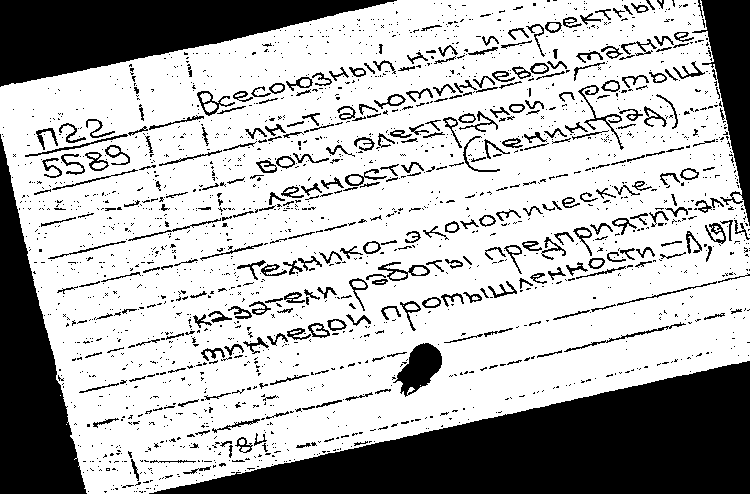 П22
5589
Всесоюзный н-и. и проектный
ин-т алюминиевой, магние-
вой и электродной промыш-
ленности (Ленинград)
Технико-экономические по-
казатели работы предприятий алю-
миниевой промышленности. – Л, 1974
784